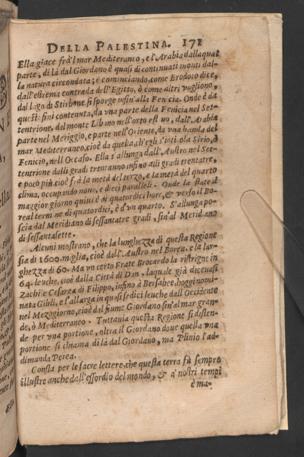 DELLA PALESTINA. 171
Ella giace frà'l mar Mediterraneo, e l'Arabia dalla qual
parte, di là dal Giordano è quasi di continuati monti dal-
la natura circondata; e cominciando, come Erodoto dice,
dall'estrema contrada dell'Egitto, ò come altri vogliono,
dal lago di Sirbone si sporge insin'alla Fenicia. Onde è da
questi fini contenuta, da una parte della Fenicia nel Set-
tentrione, dal monte Libano nell'orto estivo, dall'Arabia
parte nel Meriggio, e parte nell'Oriente, da una banda del
mar Mediterraneo, cioè da quella ch'egli Siriò,
Fenicio, nell'Occaso. Ella s'allunga dall'Austro nel Set-
tentrione dalli gradi trent'uno insino alli gradi trentatre,
e poco più, cioè frà la metà del terzo, e la metà del quarto
clima, occupando nove, e dieci paralleli. Onde la state al
maggior giorno quivi è di quatordici hore, e verso il Bo-
real termine di quatordici, e d'un quarto. S'allunga po-
scia dal Meridiano di sessantatre gradi, sin'al Meridiano
di sessantasette.
Alcuni mostrano, che la lunghezza di questa Regione
sia di 160. miglia, cioè dall'Austro nel Borea, e la lar-
ghezza di 60. Ma un certo Frate Brocardo la ristrigne in
64. leuche, cioè dalla Città di Dan, laquale già diceuasi
e Cesarea di Filippo, insino à Bersabee, hoggi nomi-
nata Gibli, e l'allarga in quasi sedici leuche dall'Occidente
nel Mezzogiorno, cioè dal fiume Giordano sin'al mar gran-
de, ò Mediterraneo. Tuttauia questa Regione si disten-
de per una portione, oltra il Giordano doue quella una
portione si chiama di là dal Giordano, ma Plinio l'ad-
dimanda Perea.
Consta per le sacre lettere, che questa terra fù sempre
illustre anche dall'essordio del mondo, & a' nostri tempi
è ma-